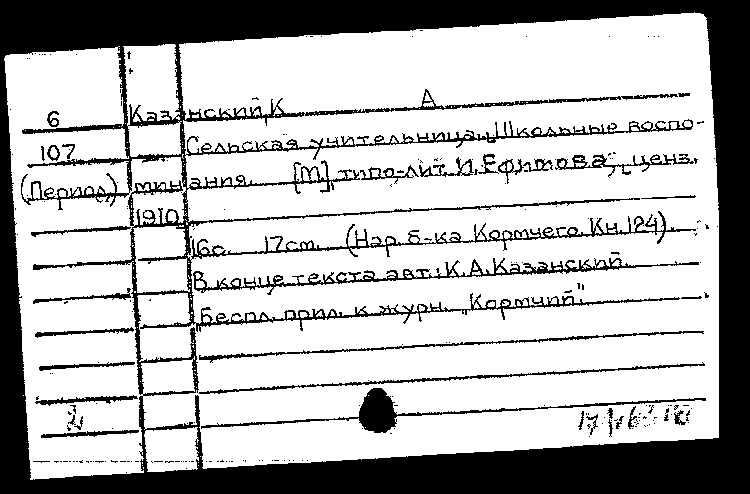 6 Казанский, К А
107 Сельская учительница. Школьные воспо-
(Период.) минания. [М], типо-лит. И. Ефимова, ценз.
1910.
16с. 17см. (Нар. б-ка Кормчего. Кн. 124).
В конце текста авт.: К. А. Казанский.
Беспл. прил. к журн. „Кормчий".